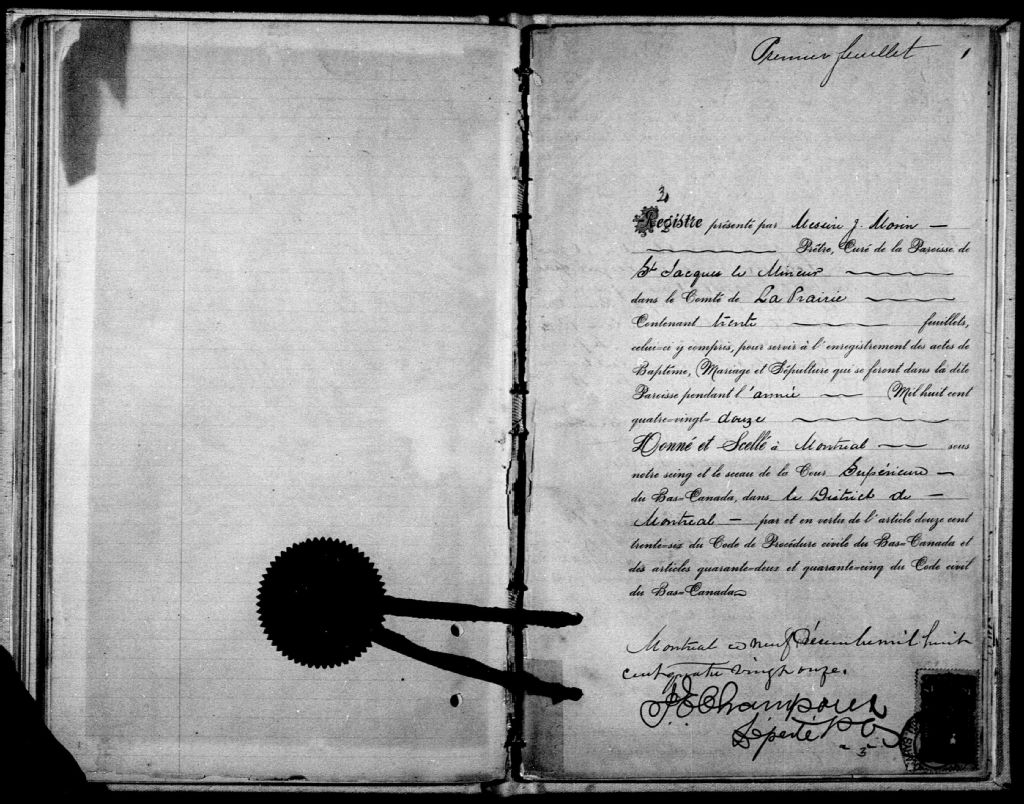 Premier feuillet 1
3
Registre présenté par Messire J. Morin
Prêtre, Curé de la Paroisse de
St Jacques le Mineur
dans le Comté de La Prairie
Contenant trente feuillets,
celui-ci y compris, pour servir à l'enregistrement des actes de
Baptême, Mariage et Sépulture qui se feront dans la dite
Paroisse pendant l'année Mil huit cent
quatre-vingt-douze
Donné et Scellé à Montréal sous
notre seing et le sceau de la Cour Supérieure
du Bas-Canada, dans le District de
Montréal par et en vertu de l'article douze cent
trente-six du Code de Procédure civile du Bas-Canada et
des articles quarante-deux et quarante-cinq du Code civil
du Bas-Canada
Montreal ce neuf Décembre mil huit
cent quatre vingt onze.
Député P
3